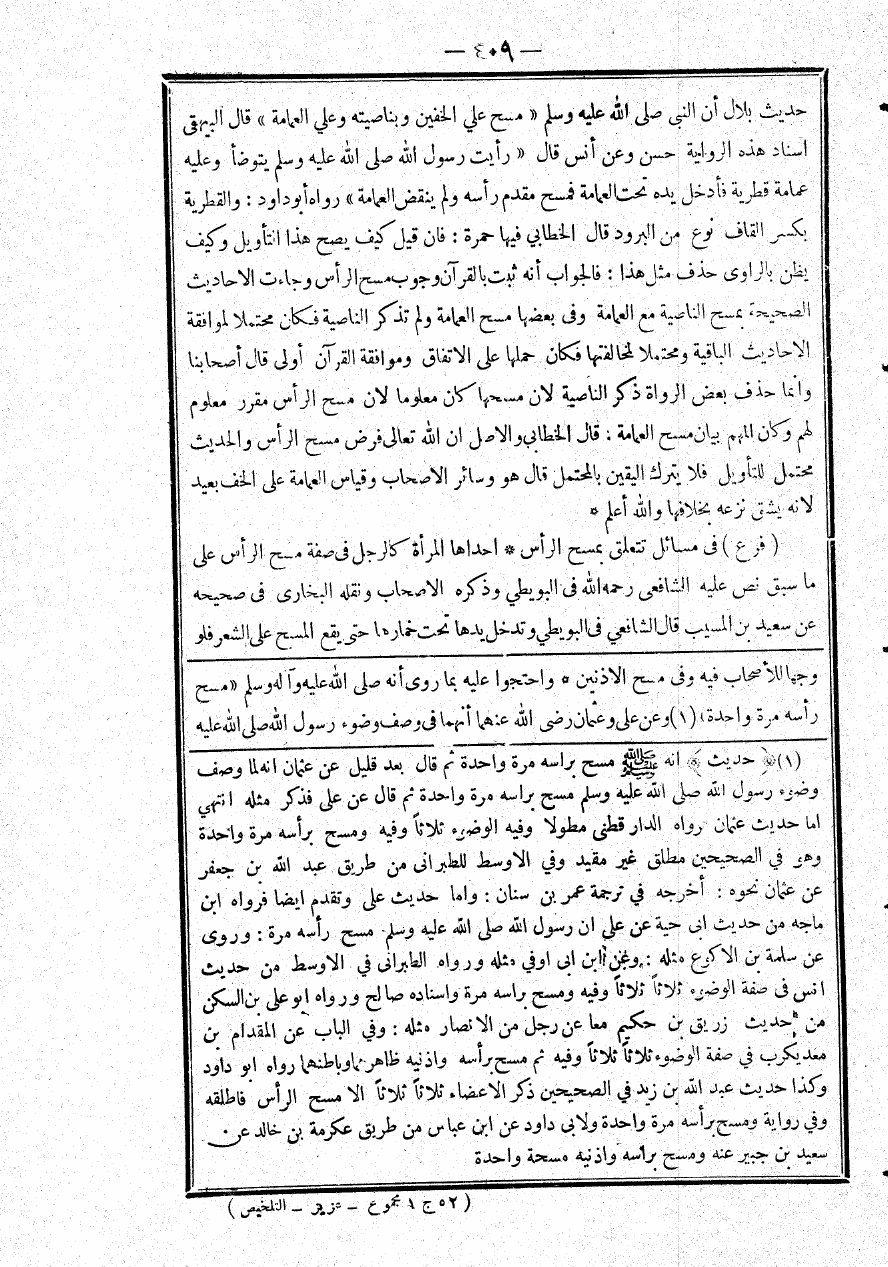 — ٤٠٩ —
حديث بلال أن النبي صلى الله عليه وسلم « مسح علي الخفين وبناصيته وعلي العمامة » قال البيهقى
اسناد هذه الرواية حسن وعن أنس قال « رأيت رسول الله صلى الله عليه وسلم يتوضأ وعليه
عمامة قطرية فأدخل يده تحت العمامة فمسح مقدم رأسه ولم ينقض العمامة » رواه أبو داود : والقطرية
بكسر القاف نوع من البرود قال الخطابي فيها حمرة : فان قيل كيف يصح هذا التأويل وكيف
يظن بالراوى حذف مثل هذا : فالجواب أنه ثبت بالقرآن وجوب مسح الرأس وجاءت الاحاديث
الصحيحة بمسح الناصية مع العمامة وفى بعضها مسح العمامة ولم تذكر الناصية فكان محتملا لموافقة
الاحاديث الباقية ومحتملا لمخالفتها فكان حملها على الاتفاق وموافقة القرآن أولى قال أصحابنا
وانما حذف بعض الرواة ذكر الناصية لان مسحها كان معلوما لان مسح الرأس مقرر معلوم
لهم وكان المهم بيان مسح العمامة : قال الخطابي والاصل ان الله تعالى فرض مسح الرأس والحديث
محتمل للتأويل فلا يترك اليقين بالمحتمل قال هو وسائر الاصحاب وقياس العمامة على الخف بعيد
لانه يشق نزعه بخلافها والله أعلم *
( فرع ) فى مسائل تتعلق بمسح الرأس * احداها المرأة كالرجل فى صفة مسح الرأس على
ما سبق نص عليه الشافعى رحمه الله فى البويطي وذكره الاصحاب ونقله البخارى فى صحيحه
عن سعيد بن المسيب قال الشافعي فى البويطي وتدخل يدها تحت خمارها حتى يقع المسح على الشعر فلو
وجها للأصحاب فيه وفى مسح الاذنين * واحتجوا عليه بما روى أنه صلى الله عليه وآله وسلم « مسح
رأسه مرة واحدة » (١) وعن على وعثمان رضى الله عنهما أنهما فى وصف وضوء رسول الله صلى الله عليه
(١) ﴿ حديث ﴾ انه ﷺ مسح براسه مرة واحدة ثم قال بعد قليل عن عثمان انه لما وصف
وضوء رسول الله صلى الله عليه وسلم مسح براسه مرة واحدة ثم قال عن على فذكر مثله انتهي
اما حديث عثمان رواه الدار قطنى مطولا وفيه الوضوء ثلاثاً وفيه ومسح برأسه مرة واحدة
وهو في الصحيحين مطلق غير مقيد وفي الاوسط للطبرانى من طريق عبد الله بن جعفر
عن عثمان نحوه : أخرجه في ترجمة عمر بن سنان : واما حديث على وتقدم ايضا فرواه ابن
ماجه من حديث ابى حية عن علي ان رسول الله صلى الله عليه وسلم مسح رأسه مرة : وروى
عن سلمة بن الاكوع مثله : وعن ابن ابى اوفي مثله ورواه الطبرانى في الاوسط من حديث
انس فى صفة الوضوء ثلاثاً ثلاثاً وفيه ومسح براسه مرة واسناده صالح ورواه ابو على بن السكن
من حديث زريق بن حكيم معا عن رجل من الانصار مثله : وفي الباب عن المقدام بن
معديكرب في صفة الوضوء ثلاثاً ثلاثاً وفيه ثم مسح برأسه واذنيه ظاهرهما وباطنهما رواه ابو داود
وكذا حديث عبد الله بن زيد في الصحيحين ذكر الاعضاء ثلاثاً ثلاثاً الا مسح الرأس فاطلقه
وفي رواية ومسح برأسه مرة واحدة ولابى داود عن ابن عباس من طريق عكرمة بن خالد عن
سعيد بن جبير عنه ومسح براسه واذنيه مسحة واحدة
( ٥٢ ج ١ مجموع – عزيز – التلخيص )